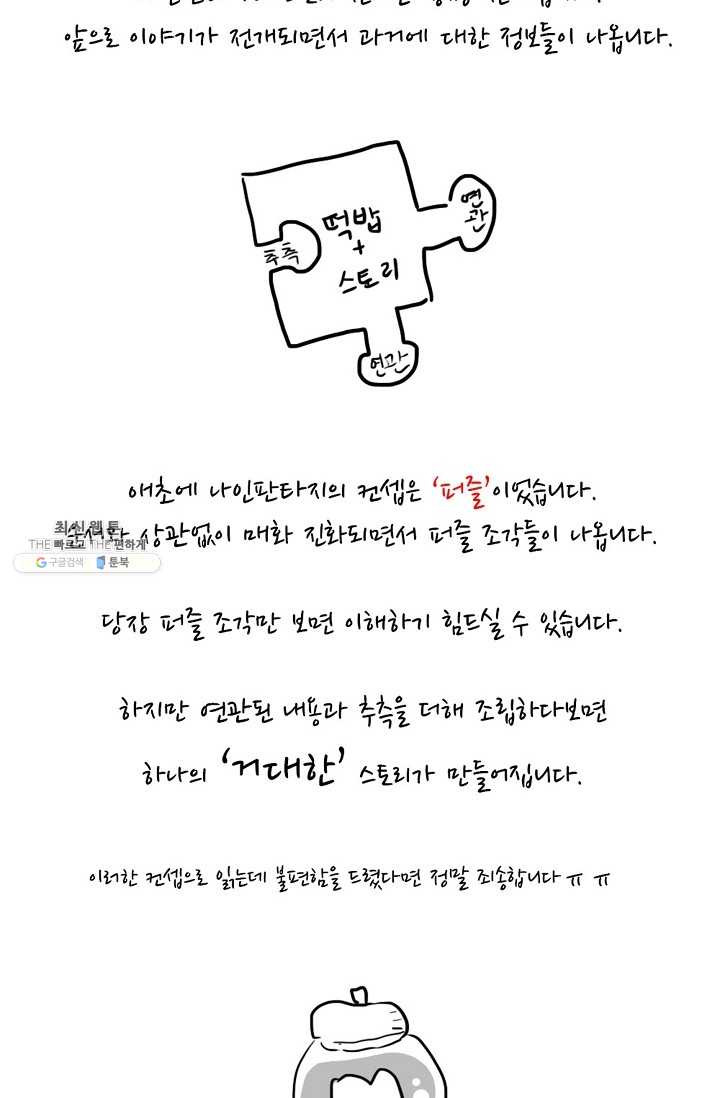 앞으로 이야기가 전개되면서 과거에 대한 정보들이 나옵니다.
연관
떡밥
+
스토리
추측
연관
애초에 나인판타지의 컨셉은 '퍼즐'이었습니다.
상관없이 매화 진화되면서 퍼즐 조각들이 나옵니다.
최신 웹툰
THE 빠르고 THE 편하게
구글검색 툰북
당장 퍼즐 조각만 보면 이해하기 힘드실 수 있습니다.
하지만 연관된 내용과 추측을 더해 조립하다보면
하나의 '거대한' 스토리가 만들어집니다.
이러한 컨셉으로 읽는데 불편함을 드렸다면 정말 죄송합니다 ㅠㅠ